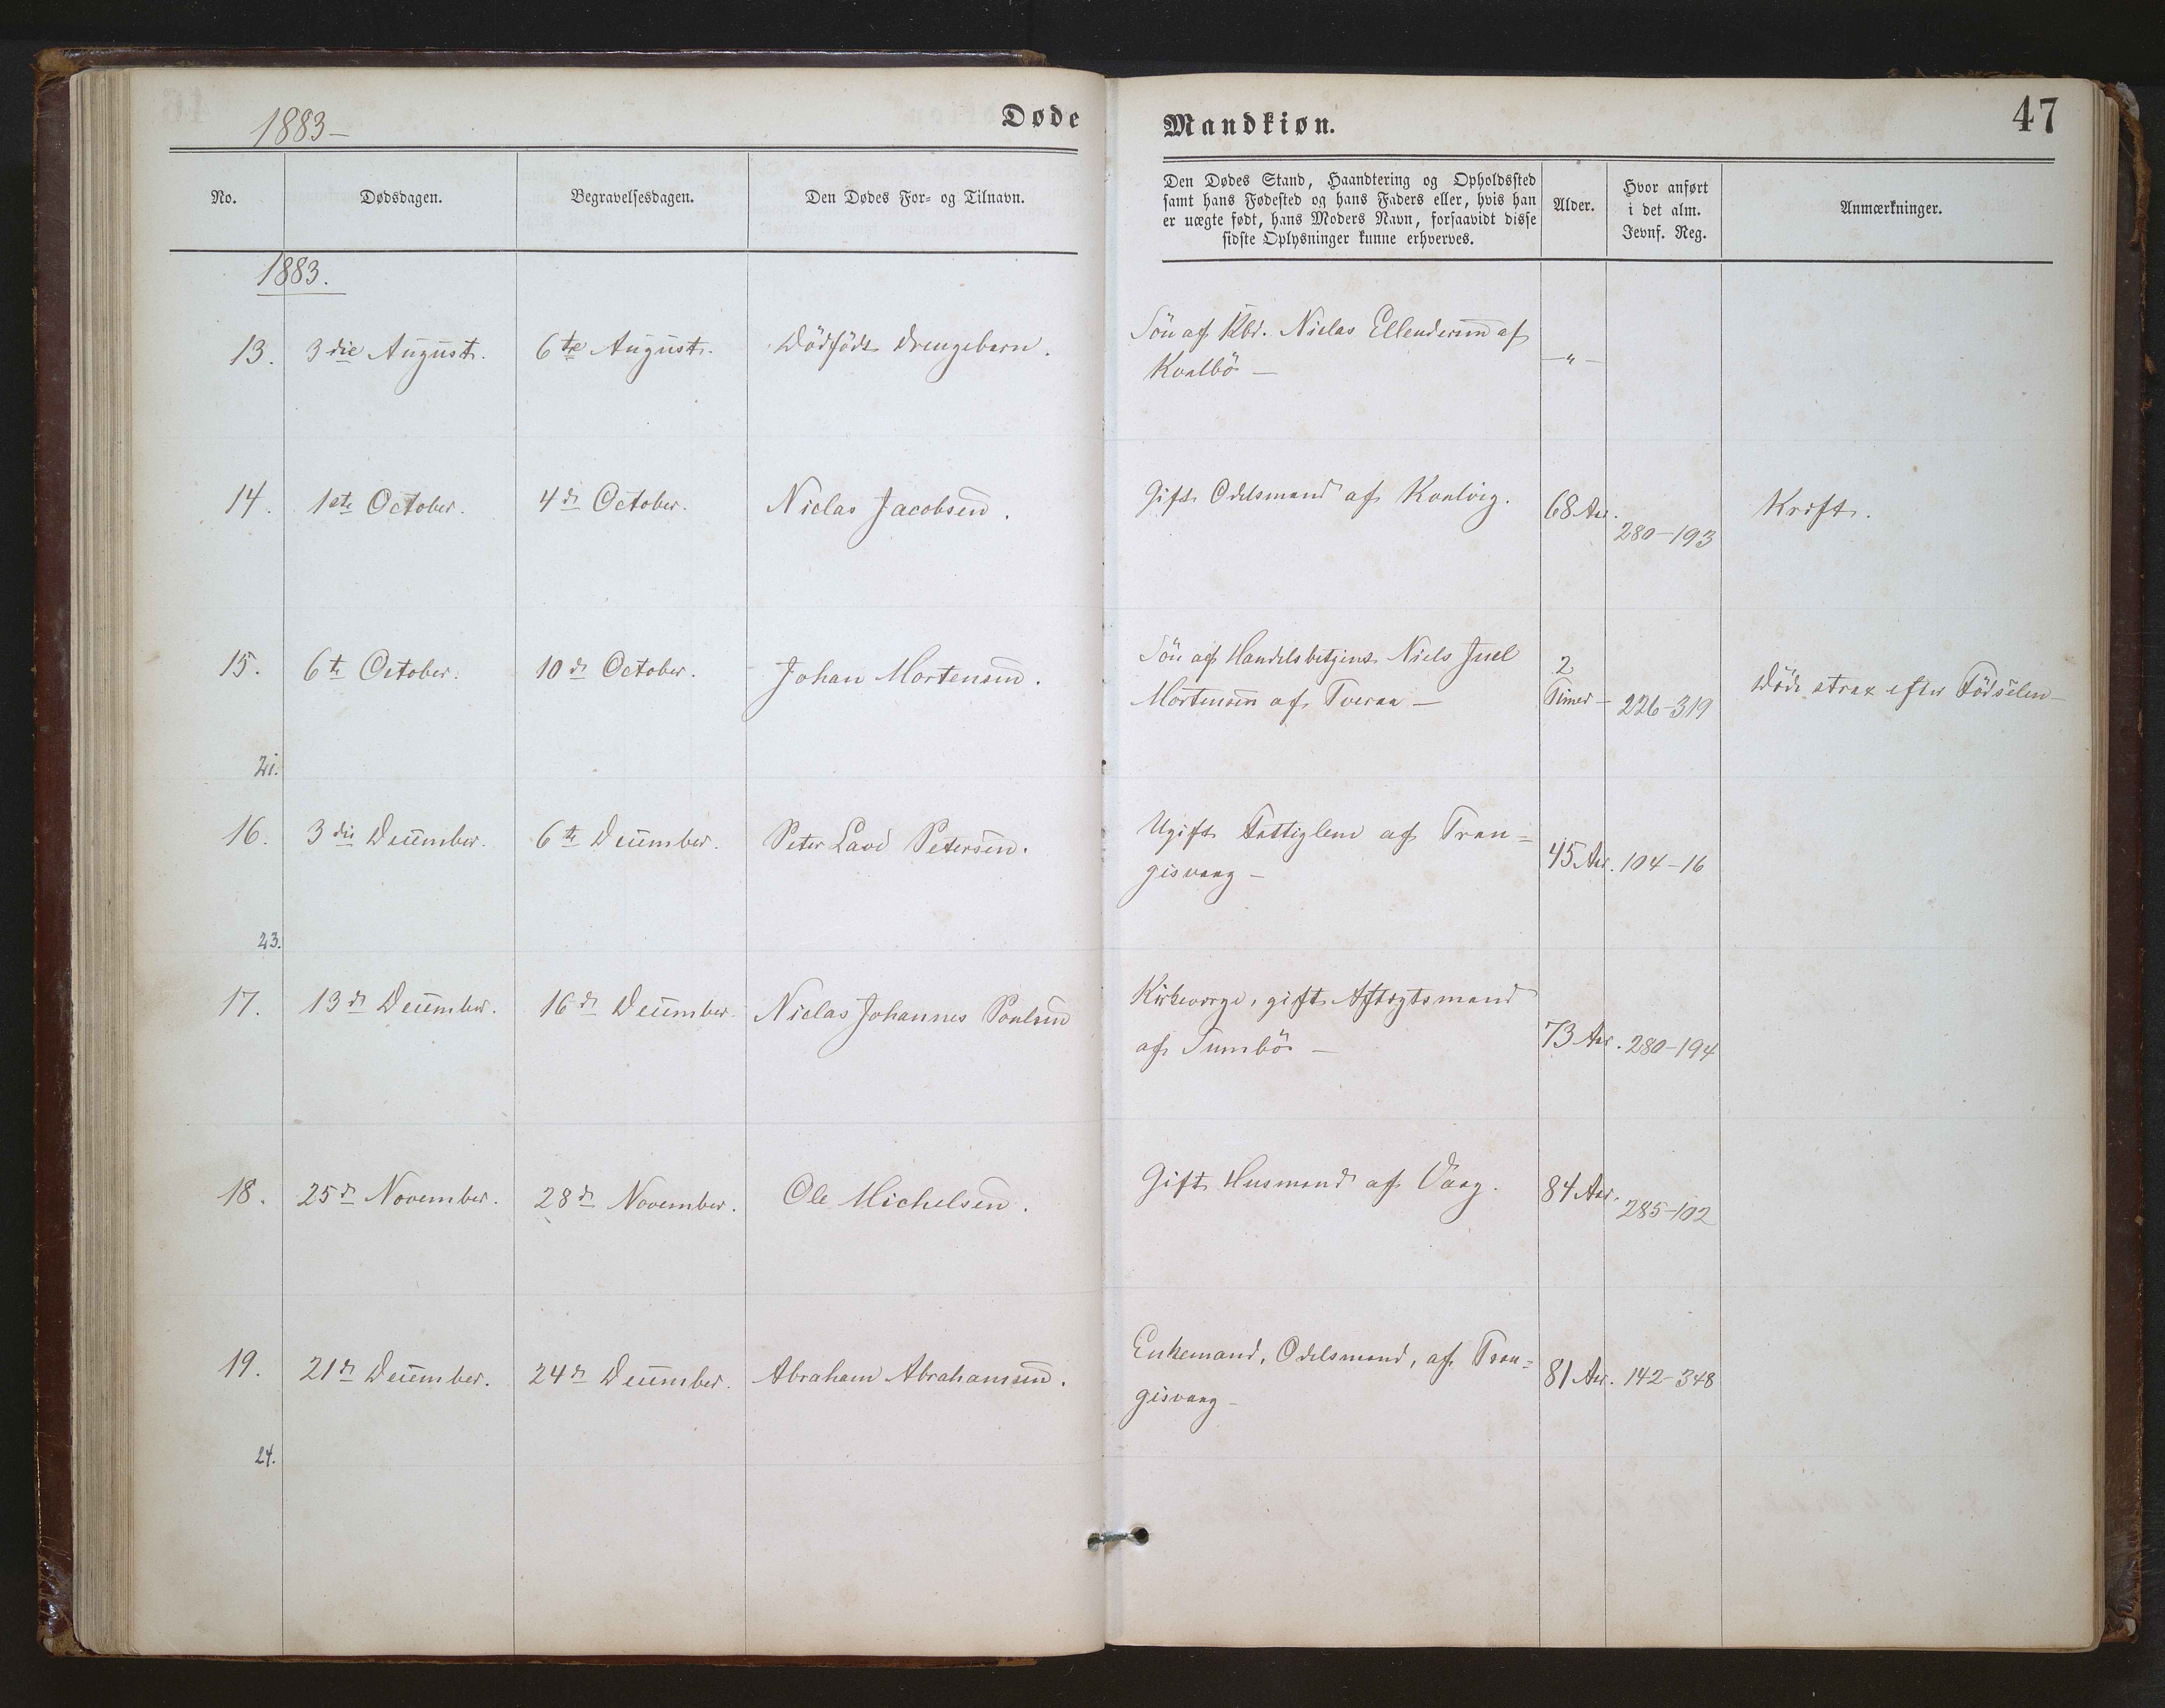 1883-
Døde Mandkiøn.
47
No.
Dødsdagen.
Begravelsesdagen.
Den Dødes For- og Tilnavn.
Den Dødes Stand, Haandtering og Opholdssted
samt hans Fødested og hans Faders eller, hvis han
er uægte født, hans Moders Navn, forsaavidt disse
sidste Oplysninger kunne erhverves.
Alder.
Hvor anført
i det alm.
Jevnf. Reg.
Anmærkninger.
1883.
13.
3die August.
6te August.
Dödfödt Drengebarn.
Sön af Kbd. Niclas Ellendersen af
Kvalbö -
-"-
14.
1ste October.
4de October.
Niclas Jacobsen.
Gift Odelsmand af Kvalvig.
68 Aar.
280-193
Kræft.
15.
6te October.
10de October.
Johan Mortensen.
Sön af Handelsbetjent Niels Juel
Mortensen af Tveraa -
2
Timer -
226-319
Död strax efter Födselen -
21.
16.
3die December.
6te December.
Peter Lavd Petersen.
Ugift Fattiglem af Tran=
gisvaag -
45 Aar.
104-16
23.
17.
13de December.
16de December.
Niclas Johannes Poulsen
Kirkeværge, gift Aftægtsmand
af Sumbö -
73 Aar.
280-194
18.
25de November.
28de November.
Ole Michelsen.
Gift Husmand af Vaag.
84 Aar.
285-102
19.
21de December.
24de December.
Abraham Abrahamsen.
Enkemand, Odelsmand, af Tran=
gisvaag -
81 Aar.
142-348
24.